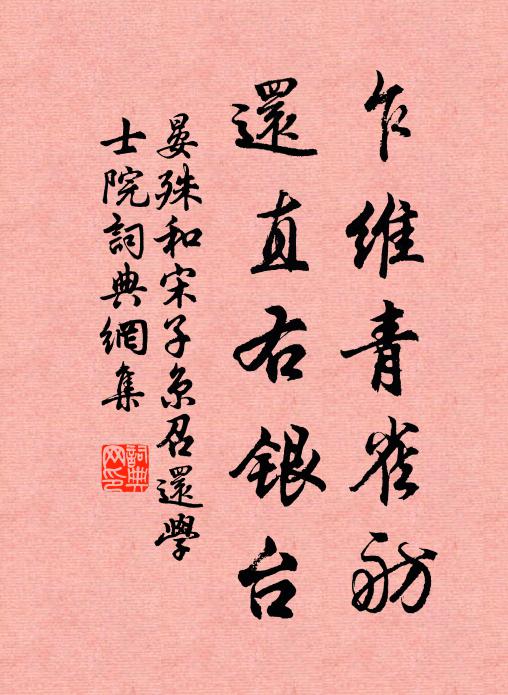 乍維青雀舫
還直右銀台
晏殊和宋子京召還學
士院詞典網集
詞典网印